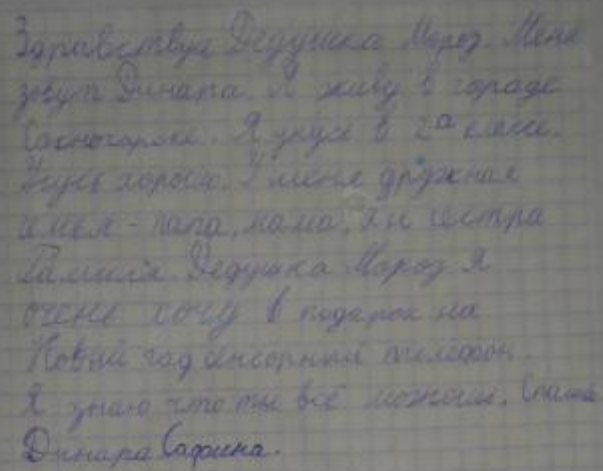 Здравствуй Дедушка Мороз. Меня
зовут Динара. Я живу в городе
Я учусь в 2а классе.
Учусь хорошо. У меня дружная
семья - папа, мама, я и сестра
Дедушка Мороз я
очень хочу в подарок на
Новый год сенсорный телефон.
Я знаю что ты всё можешь.
Динара Сафина.